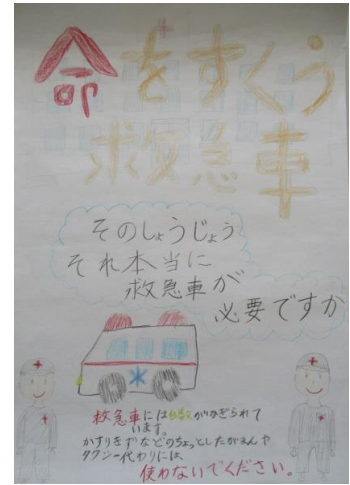 命をすくう
救急車
そのしょうじょう
それ本当に
救急車が
必要ですか
救急車には台数がかぎられて
います。
かすりきずなどのちょっとしたがまんや
タクシー代わりには、
使わないでください。